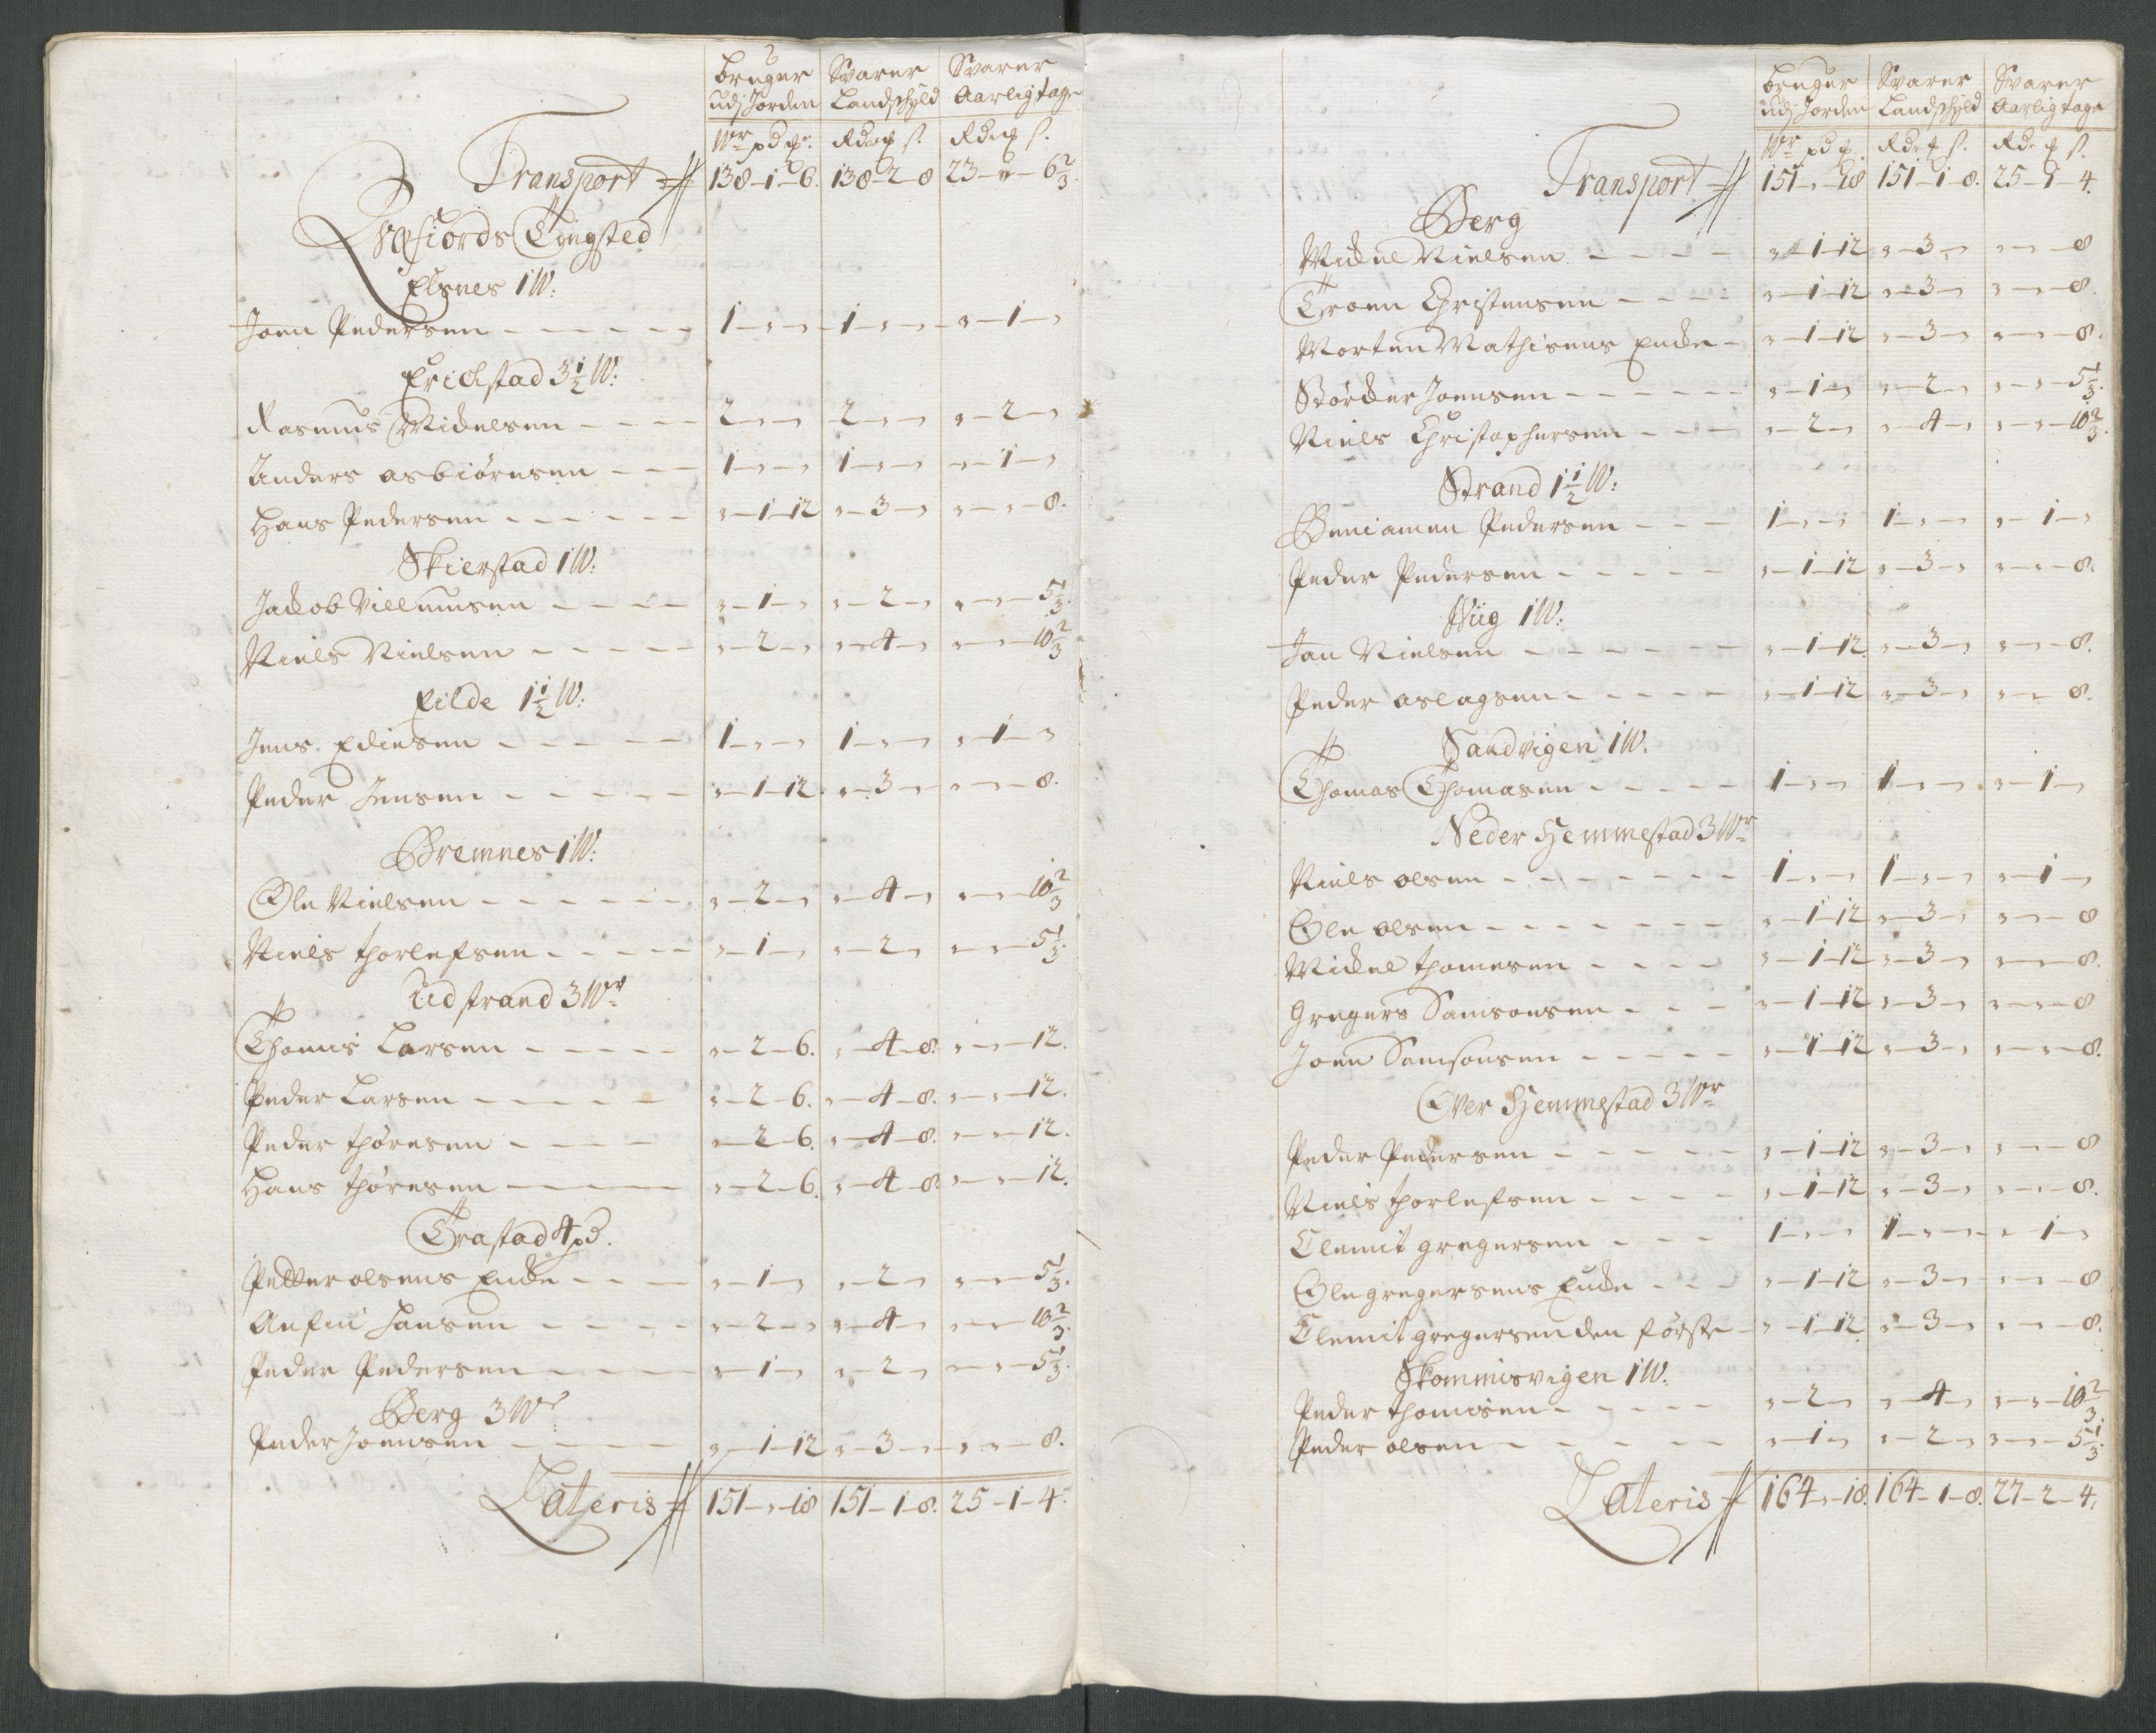 bruger Svarer Svarer
udj Jorden Landschyld Aarlig tage
Wr pd Rd s. Rd s.
Transport 138-1-6. 138-2-8 23-"-6 2/3.
Qvæfiords Tingsted
Elsnes 1 W:
Joen Pedersen - - - - - 1-"-" 1-"-" "-1-"
Erichstad 3 1/2 W:
Rasmus Michelsen - - - 2-"-" 2-"-" "-2-"
Anders asbiørnsen - - - 1-"-" 1-"-" "-1-"
Hans Pedersen - - - - - "-1-12 "-3-" "-"-8.
Skierstad 1 W:
Jacob Villumsen - - - - "-1-" "-2-" "-"-5 1/3.
Niels Nielsen - - - - - "-2-" "-4-" "-"-10 2/3
Eilde 1 1/2 W:
Jens Ediesen - - - - - 1-"-" 1-"-" "-1-"
Peder Jensen - - - - - "-1-12. "-3-" "-"-8.
Bremnes 1 W:
Ole Nielsen - - - - - - "-2-" "-4-" "-"-10 2/3
Niels thorlefsen - - - - "-1-" "-2-" "-"-5 1/3.
Udstrand 3 Wr
Thomis Larsen - - - - - "-2-6. "-4-8. "-"-12.
Peder Larsen - - - - - "-2-6. "-4-8. "-"-12.
Peder thøresen - - - - "-2-6. "-4-8. "-"-12.
Hans thøresen - - - - "-2-6. "-4-8. "-"-12.
Trastad 4 pd.
Petter olsens Encke - - - "-1-" "-2-" "-"-5 1/3.
Anfin Hansen - - - - "-2-" "-4-" "-"-10 2/3.
Peder Pedersen - - - - "-1-" "-2-" "-"-5 1/3.
Berg 3 Wr
Peder Joensen - - - - "-1-12 "-3-" "-"-8.
Lateris 151-"-18 151-1-8. 25-1-4.
bruger Svarer Svarer
udj Jorden Landschyld Aarlig tage
Wr pd Rd s. Rd s.
Transport 151-"-18 151-1-8. 25-1-4.
Berg
Michel Nielsen - - - - "-1-12 "-3-" "-"-8
Troen Christensen - - - - "-1-12 "-3-" "-"-8.
Morten Mathisens Encke - "-1-12 "-3-" "-"-8.
Størcker Joensen - - - - - "-1-" "-2-" "-"-5 1/3.
Niels Christophersen - - - "-2-" "-4-" "-"-10 2/3.
Strand 1 1/2 W:
Beniamen Pedersen - - - 1-"-" 1-"-" "-1-"
Peder Pedersen - - - - - "-1-12 "-3-" "-"-8.
Wiig 1 W:
Jan Nielsen - - - - - - "-1-12. "-3-" "-"-8.
Peder aslagsen - - - - - "-1-12 "-3-" "-"-8.
Sandvigen 1 W.
Thomas Thomasen - - - - - 1-"-" 1-"-" "-1-"
Neder Hemmestad 3 Wr
Niels olsen - - - - - - - 1-"-" 1-"-" "-1-"
Ole olsen - - - - - - - "-1-12 "-3-" "-"-8
Michel thomesen - - - - "-1-12 "-3-" "-"-8.
Gregers Samsonsen - - - "-1-12 "-3-" "-"-8
Joen Samsonsen - - - - - "-1-12 "-3-" "-"-8.
Over Hemmestad 3 Wr
Peder Pedersen - - - - - "-1-12 "-3-" "-"-8
Niels thorlefsen - - - - "-1-12 "-3-" "-"-8.
Clemit gregersen - - - 1-"-" 1-"-" "-1-"
Ole gregersens Encke - - - "-1-12 "-3-" "-"-8
Clemit gregersen den første - "-1-12 "-3-" "-"-8.
Skommisvigen 1 W.
Peder thomisen - - - - - "-2-" "-4-" "-"-10 2/3.
Peder olsen - - - - - "-1-" "-2-" "-"-5 1/3.
Lateris 164-"-18. 164-1-8. 27-2-4.